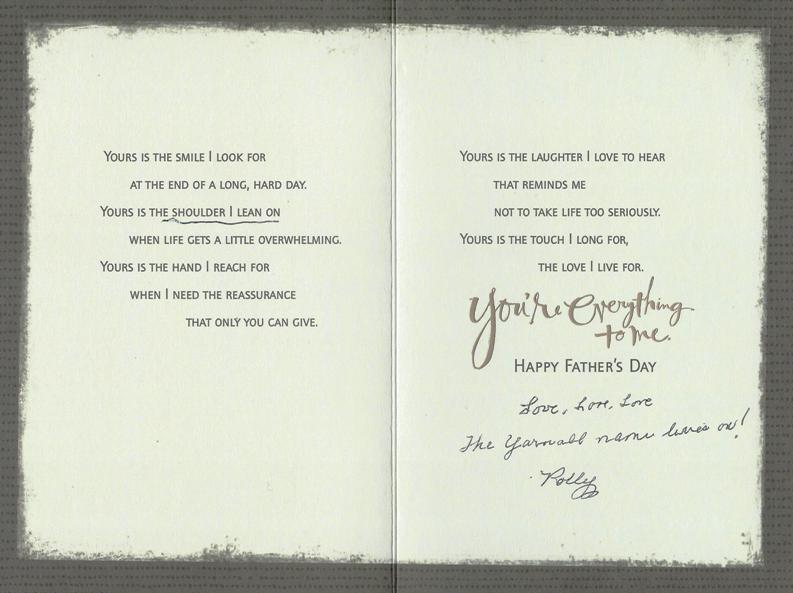 Yours is the smile I look for
at the end of a long, hard day.
Yours is the shoulder I lean on
when life gets a little overwhelming.
Yours is the hand I reach for
when I need the reassurance
that only you can give.
Yours is the laughter I love to hear
that reminds me
not to take life too seriously.
Yours is the touch I long for,
the love I live for.
You're everything
to me.
Happy Father's Day
Love, Love, Love
The Yarnall name lives on!
Polly